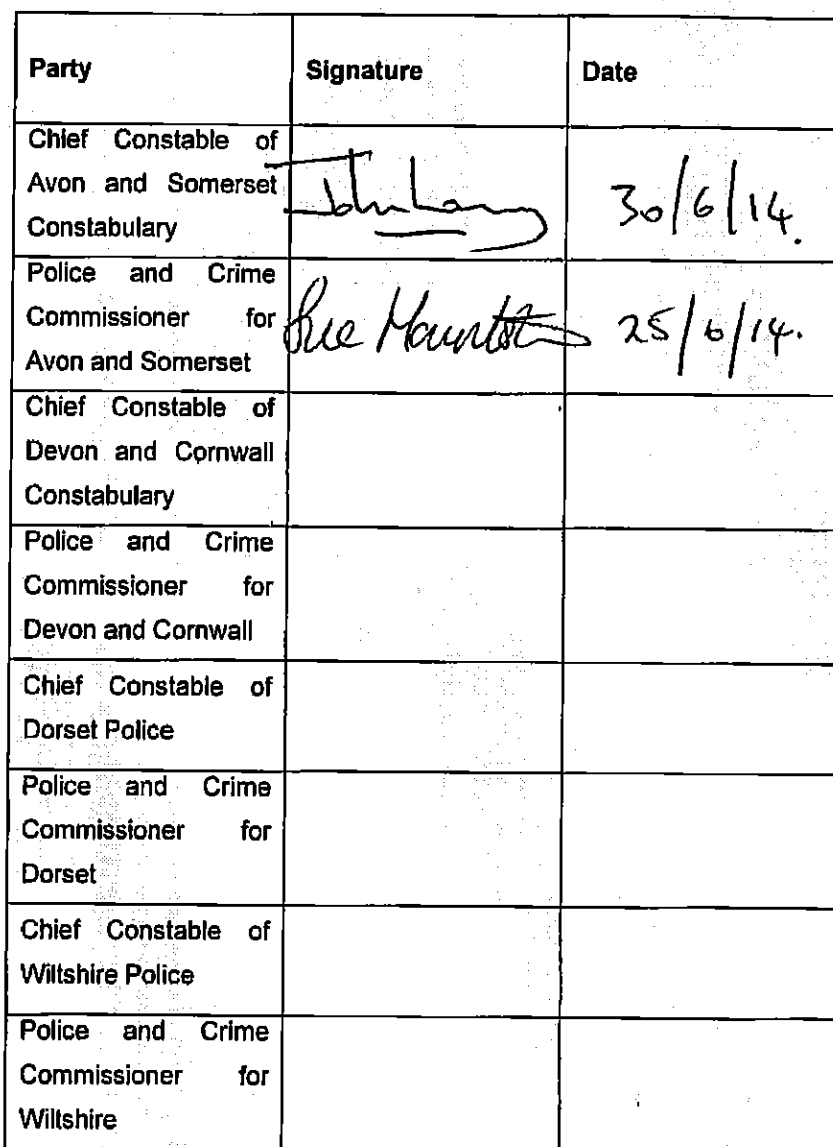 Party Signature Date
Chief Constable of
Avon and Somerset
Constabulary
John Long 30/6/14.
Police and Crime
Commissioner for
Avon and Somerset
Sue Mountstevens 25/6/14.
Chief Constable of
Devon and Cornwall
Constabulary
Police and Crime
Commissioner for
Devon and Cornwall
Chief Constable of
Dorset Police
Police and Crime
Commissioner for
Dorset
Chief Constable of
Wiltshire Police
Police and Crime
Commissioner for
Wiltshire